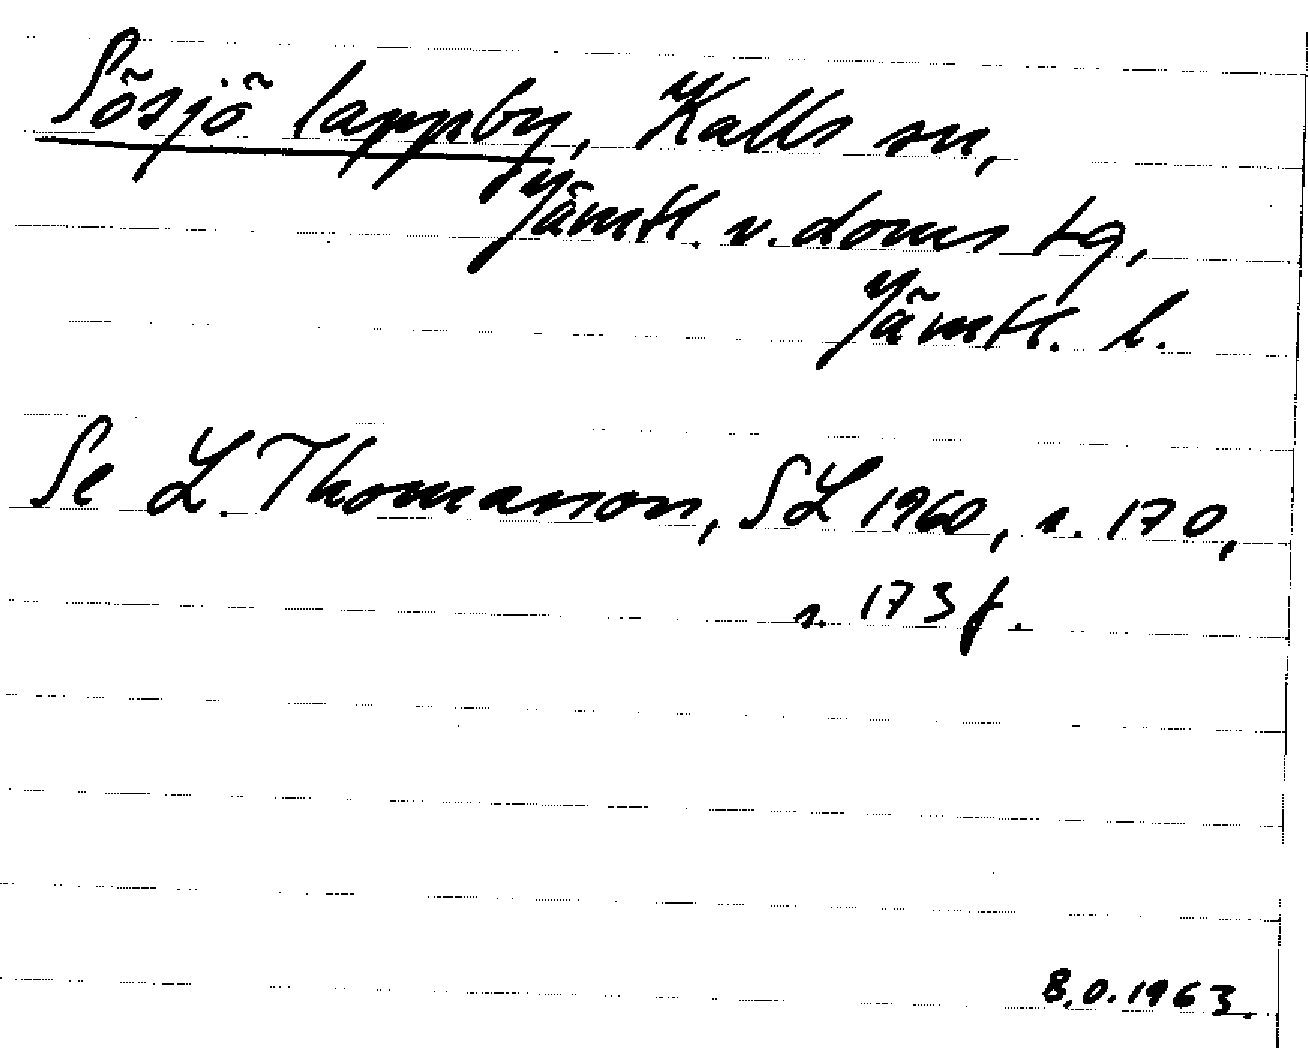 Sösjö lappby, Kalls sn,
Jämtl. v. doms tg,
Jämtl. l.
Se L. Thomasson, SL 1960, s. 170,
s. 173 f.
B.O. 1963.